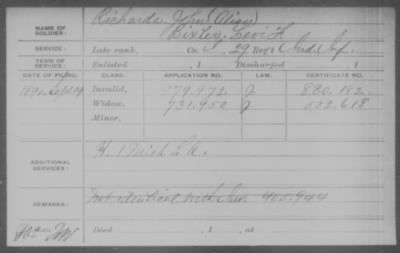 Richards, John (Alias)
NAME OF SOLDIER: Bixler, Levi F.
SERVICE: Late rank, Co. I, 29 Reg't Ind. Inf.
TERM OF SERVICE: Enlisted , 1 Discharged , 1
DATE OF FILING. CLASS. APPLICATION NO. LAW. CERTIFICATE NO.
Invalid, 179.972 880.182
Widow, 731.950 582.618
Minor,
ADDITIONAL SERVICES: H. 1 Mich L.A.
REMARKS: Not identical with Inv. 405.944
Died , 1 , at